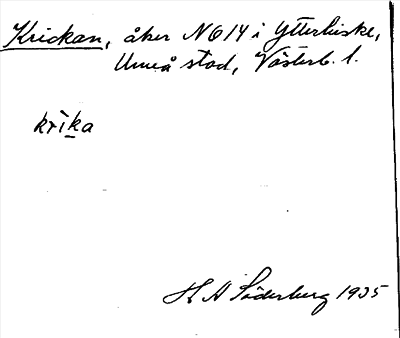 Krickan, åker N614 i Ytterhiske,
Umeå stad, Västerb. l.
krìka
H A Söderberg 1935